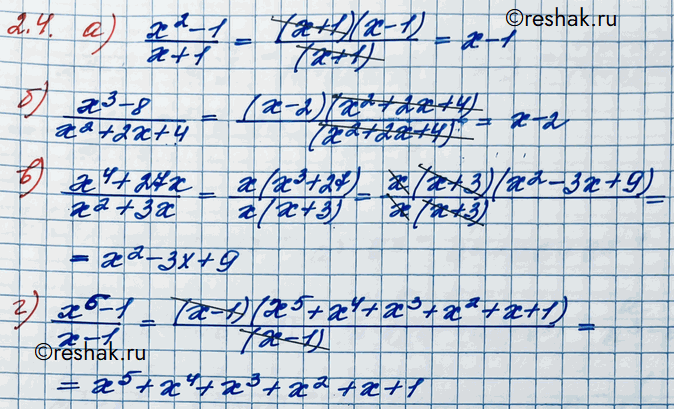 ©reshak.ru
2.4. а) (x²-1)/(x+1) = ((x+1)(x-1))/((x+1)) = x-1
б) (x³-8)/(x²+2x+4) = ((x-2)(x²+2x+4))/((x²+2x+4)) = x-2
в) (x⁴+27x)/(x²+3x) = (x(x³+27))/(x(x+3)) = (x(x+3)(x²-3x+9))/(x(x+3)) =
= x²-3x+9
г) (x⁶-1)/(x-1) = ((x-1)(x⁵+x⁴+x³+x²+x+1))/((x-1)) =
©reshak.ru
= x⁵+x⁴+x³+x²+x+1